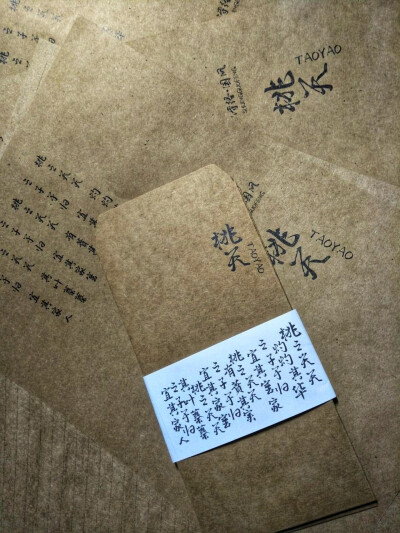 诗经·国风
桃夭
TAOYAO
桃夭
TAOYAO
桃夭
TAOYAO
桃之夭夭 灼灼
之子于归 宜其
桃之夭夭 有蕡其
之子于归 宜其家室
夭夭 其叶蓁蓁
于归 宜其家人
桃之夭夭
灼灼其华
之子于归
宜其室家
桃之夭夭
有蕡其实
之子于归
宜其家室
桃之夭夭
其叶蓁蓁
之子于归
宜其家人